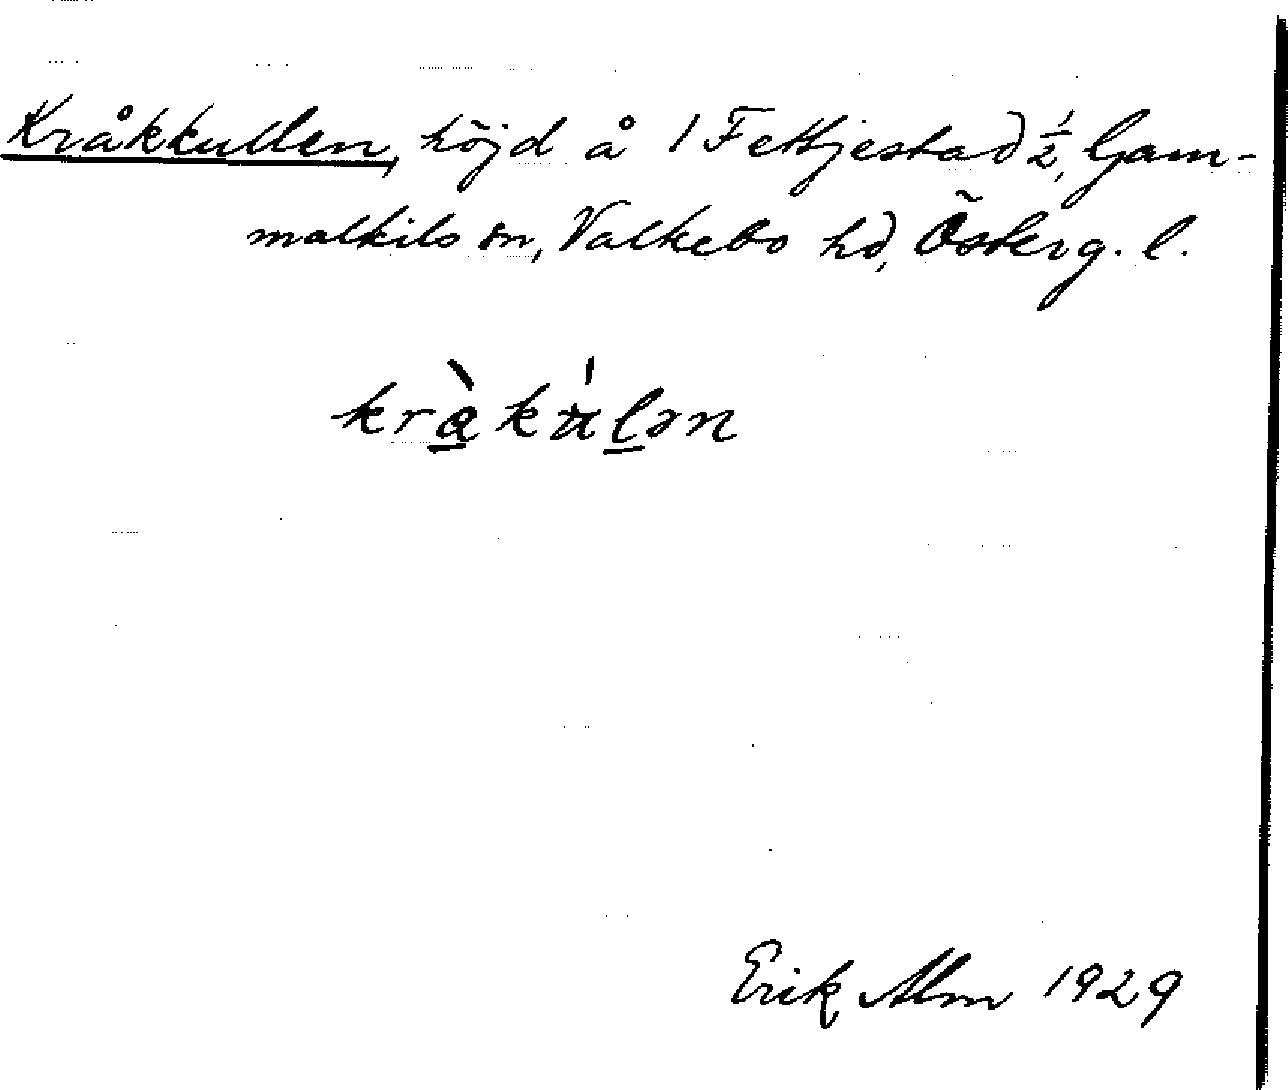 Kråkkullen, höjd å 1 Fettjestad 1/2, Gam-
malkils sn, Valkebo hd, Österg. l.
Erik Alm 1929